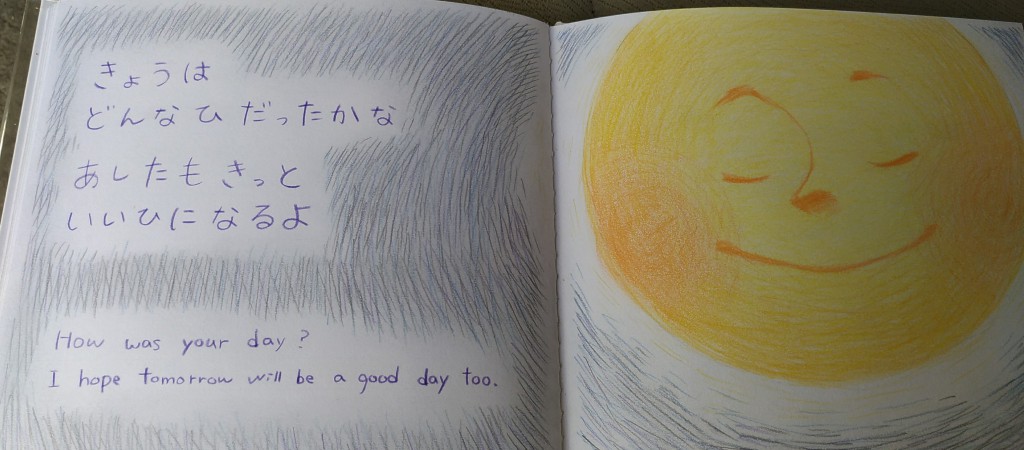 きょうは
どんなひ だったかな
あしたも きっと
いいひに なるよ
How was your day?
I hope tomorrow will be a good day too.